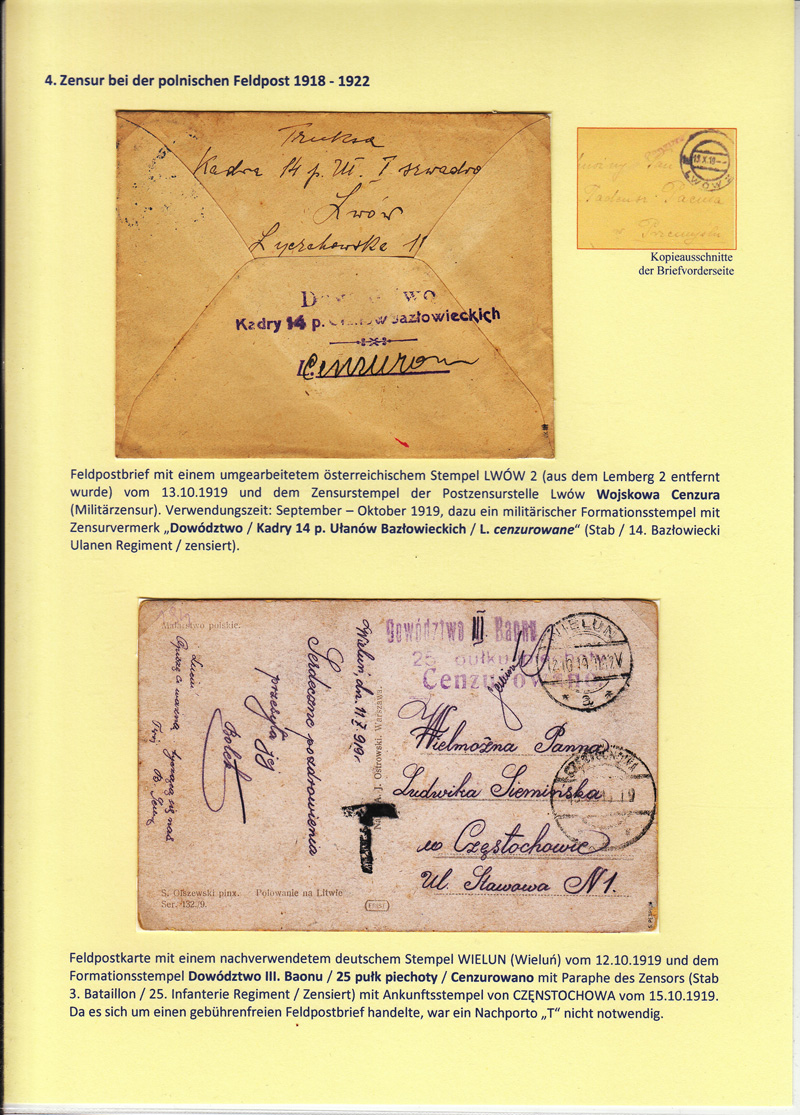 4. Zensur bei der polnischen Feldpost 1918 - 1922
Truksa
Kadra 14 p. Uł. I szwadro
Lwów
Łyczakowska 11
Kadry 14 p. Ułanów Bazłowieckich
L. Cenzurow
13.X.19
LWÓW 2
Pan
Tadeusz Pacuła
w Przemyślu
Kopieausschnitte
der Briefvorderseite
Feldpostbrief mit einem umgearbeitetem österreichischem Stempel LWÓW 2 (aus dem Lemberg 2 entfernt
wurde) vom 13.10.1919 und dem Zensurstempel der Postzensurstelle Lwów Wojskowa Cenzura
(Militärzensur). Verwendungszeit: September – Oktober 1919, dazu ein militärischer Formationsstempel mit
Zensurvermerk „Dowództwo / Kadry 14 p. Ułanów Bazłowieckich / L. cenzurowane“ (Stab / 14. Bazłowiecki
Ulanen Regiment / zensiert).
Malarstwo polskie.
Wieluń, dn. 11/X 919r.
Serdeczne pozdrowienia
przesyła jej
Bolek
Dowództwo III Baonu
25 pułku piechoty
Cenzurowano
WIELUN
12.10.19
Wielmożna Panna
Ludwika Siemińska
w Częstochowie
Ul. Stawowa N1.
CZĘSTOCHOWA
T
J. Ostrowski. Warszawa.
S. Olszewski pinx. Polowanie na Litwie
Ser. 132.79.
Feldpostkarte mit einem nachverwendetem deutschem Stempel WIELUN (Wieluń) vom 12.10.1919 und dem
Formationsstempel Dowództwo III. Baonu / 25 pułk piechoty / Cenzurowano mit Paraphe des Zensors (Stab
3. Bataillon / 25. Infanterie Regiment / Zensiert) mit Ankunftsstempel von CZĘNSTOCHOWA vom 15.10.1919.
Da es sich um einen gebührenfreien Feldpostbrief handelte, war ein Nachporto „T“ nicht notwendig.